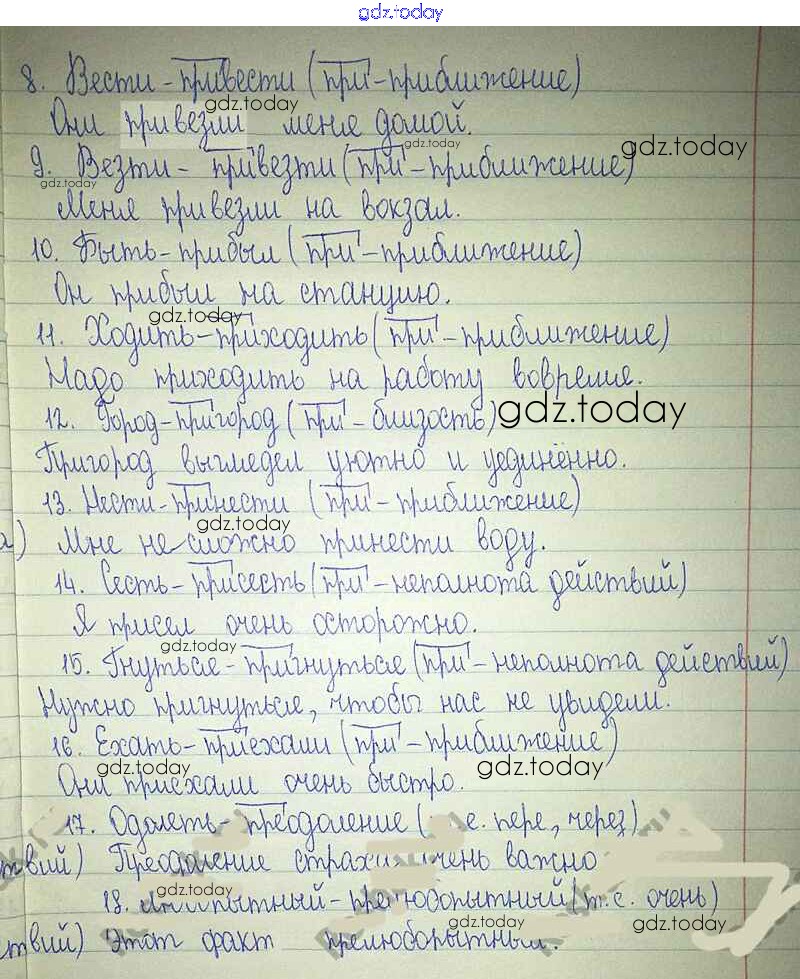 gdz.today
8. Вести - привести (при - приближение)
gdz.today
Они привезли меня домой.
gdz.today
gdz.today
9. Везти - привезти (при - приближение)
gdz.today
Меня привезли на вокзал.
10. Быть - прибыл (при - приближение)
Он прибыл на станцию.
gdz.today
11. Ходить - приходить (при - приближение)
Надо приходить на работу вовремя.
12. Город - пригород (при - близость)
gdz.today
Пригород выглядел уютно и уединённо.
13. Нести - принести (при - приближение)
gdz.today
а) Мне не сложно принести воду.
14. Сесть - присесть (при - неполнота действий)
Я присел очень осторожно.
gdz.today
15. Гнуться - пригнуться (при - неполнота действий)
Нужно пригнуться, чтобы нас не увидели.
16. Ехать - приехали (при - приближение)
gdz.today
gdz.today
Они приехали очень быстро.
17. Одолеть - преодоление ( е. пере, через)
ствий) Преодоление страха очень важно
gdz.today
18. пытный - прелюбопытный (т.е. очень)
gdz.today
gdz.today
ствий) Этот факт прелюбопытным.